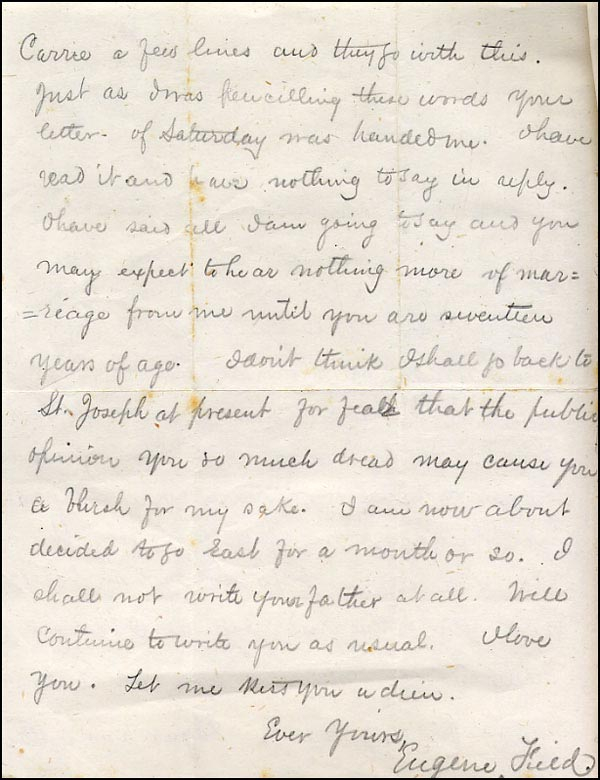 Carrie a few lines and they go with this.
Just as I was pencilling these words your
letter of Saturday was handed me. I have
read it and have nothing to say in reply.
I have said all I am going to say and you
may expect to hear nothing more of mar=
=riage from me until you are seventeen
years of age. I don't think I shall go back to
St. Joseph at present for fear that the public
opinion you so much dread may cause you
a blush for my sake. I am now about
decided to go East for a month or so. I
shall not write your father at all. Will
continue to write you as usual. I love
you. Let me kiss you adieu.
Ever Yours,
Eugene Field.